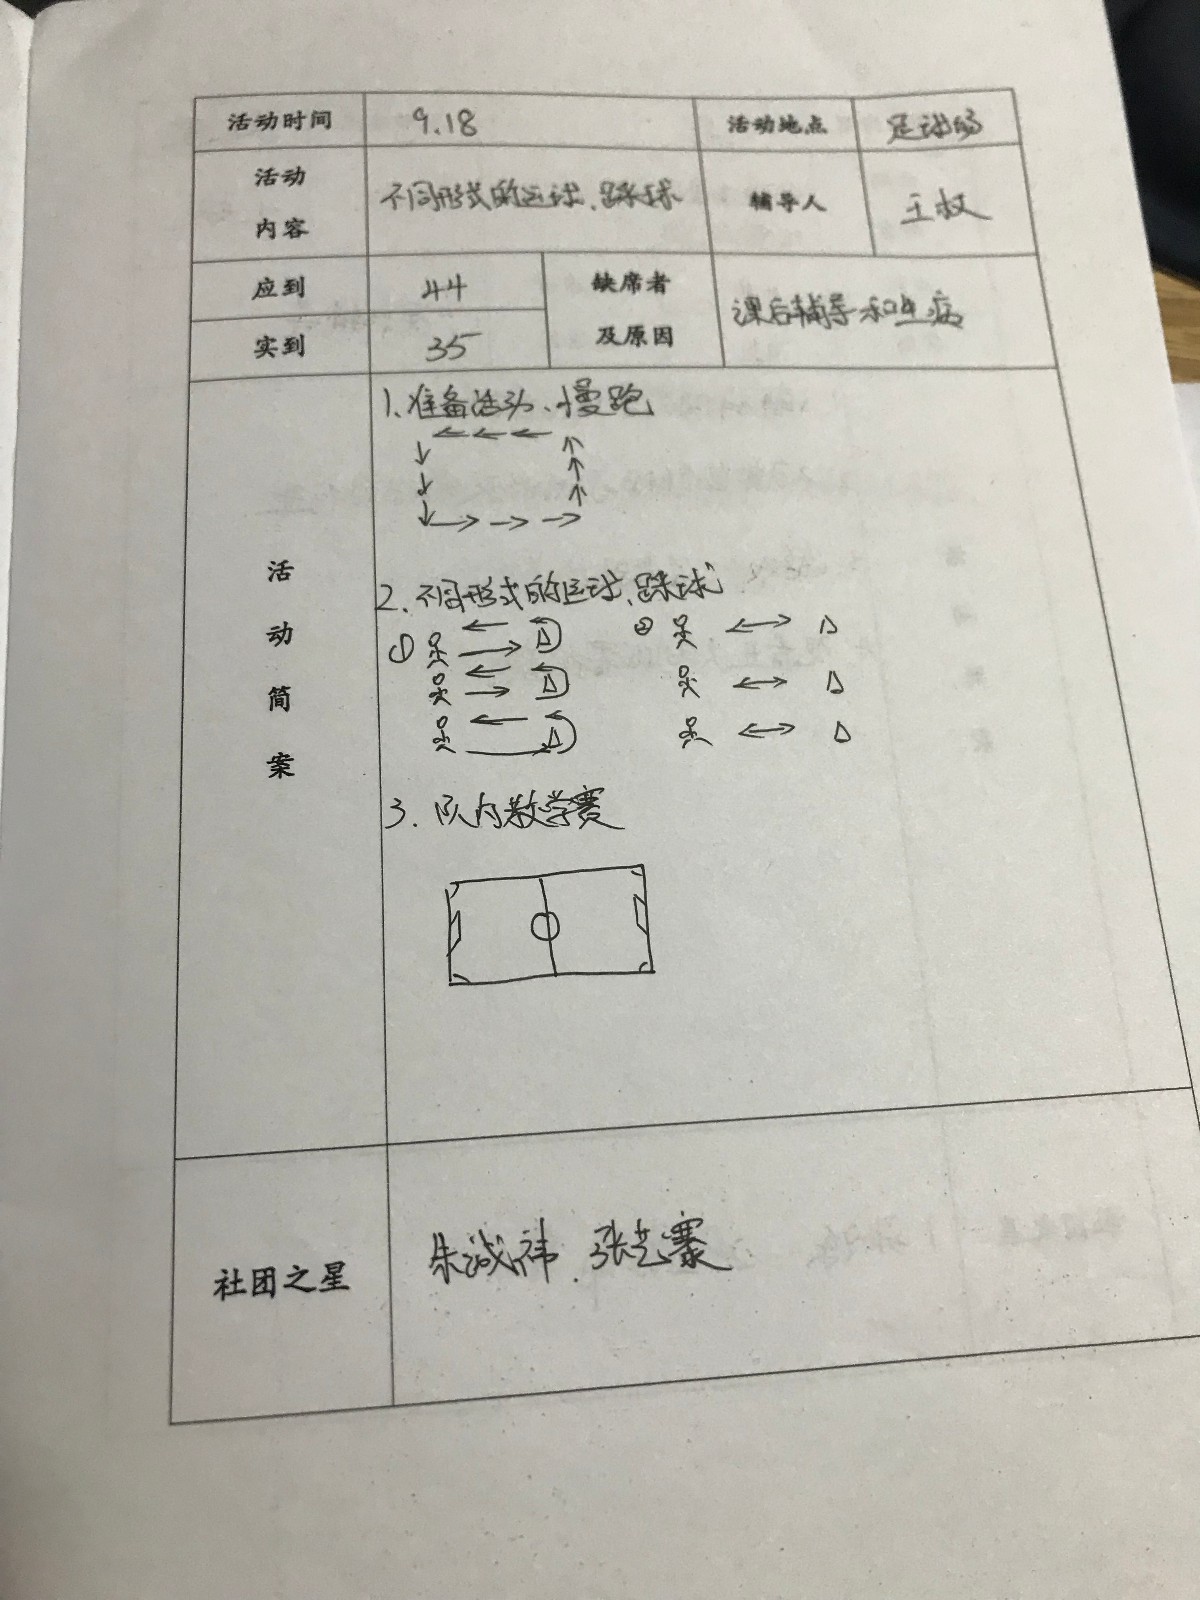 活动时间 9.18 活动地点 足球场
活动内容 不同形式的运球、踩球 辅导人 王权
应到 44 缺席者及原因 课后辅导和生病
实到 35
活动简案
1、准备活动、慢跑
2、不同形式的运球、踩球
① ②
3、队内教学赛
社团之星 朱诚祎、张艺骞